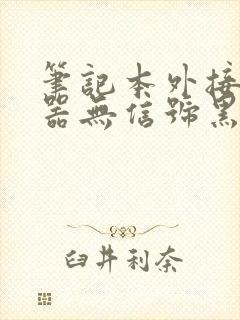 筆記本外接
器無信號黑
臼井利奈